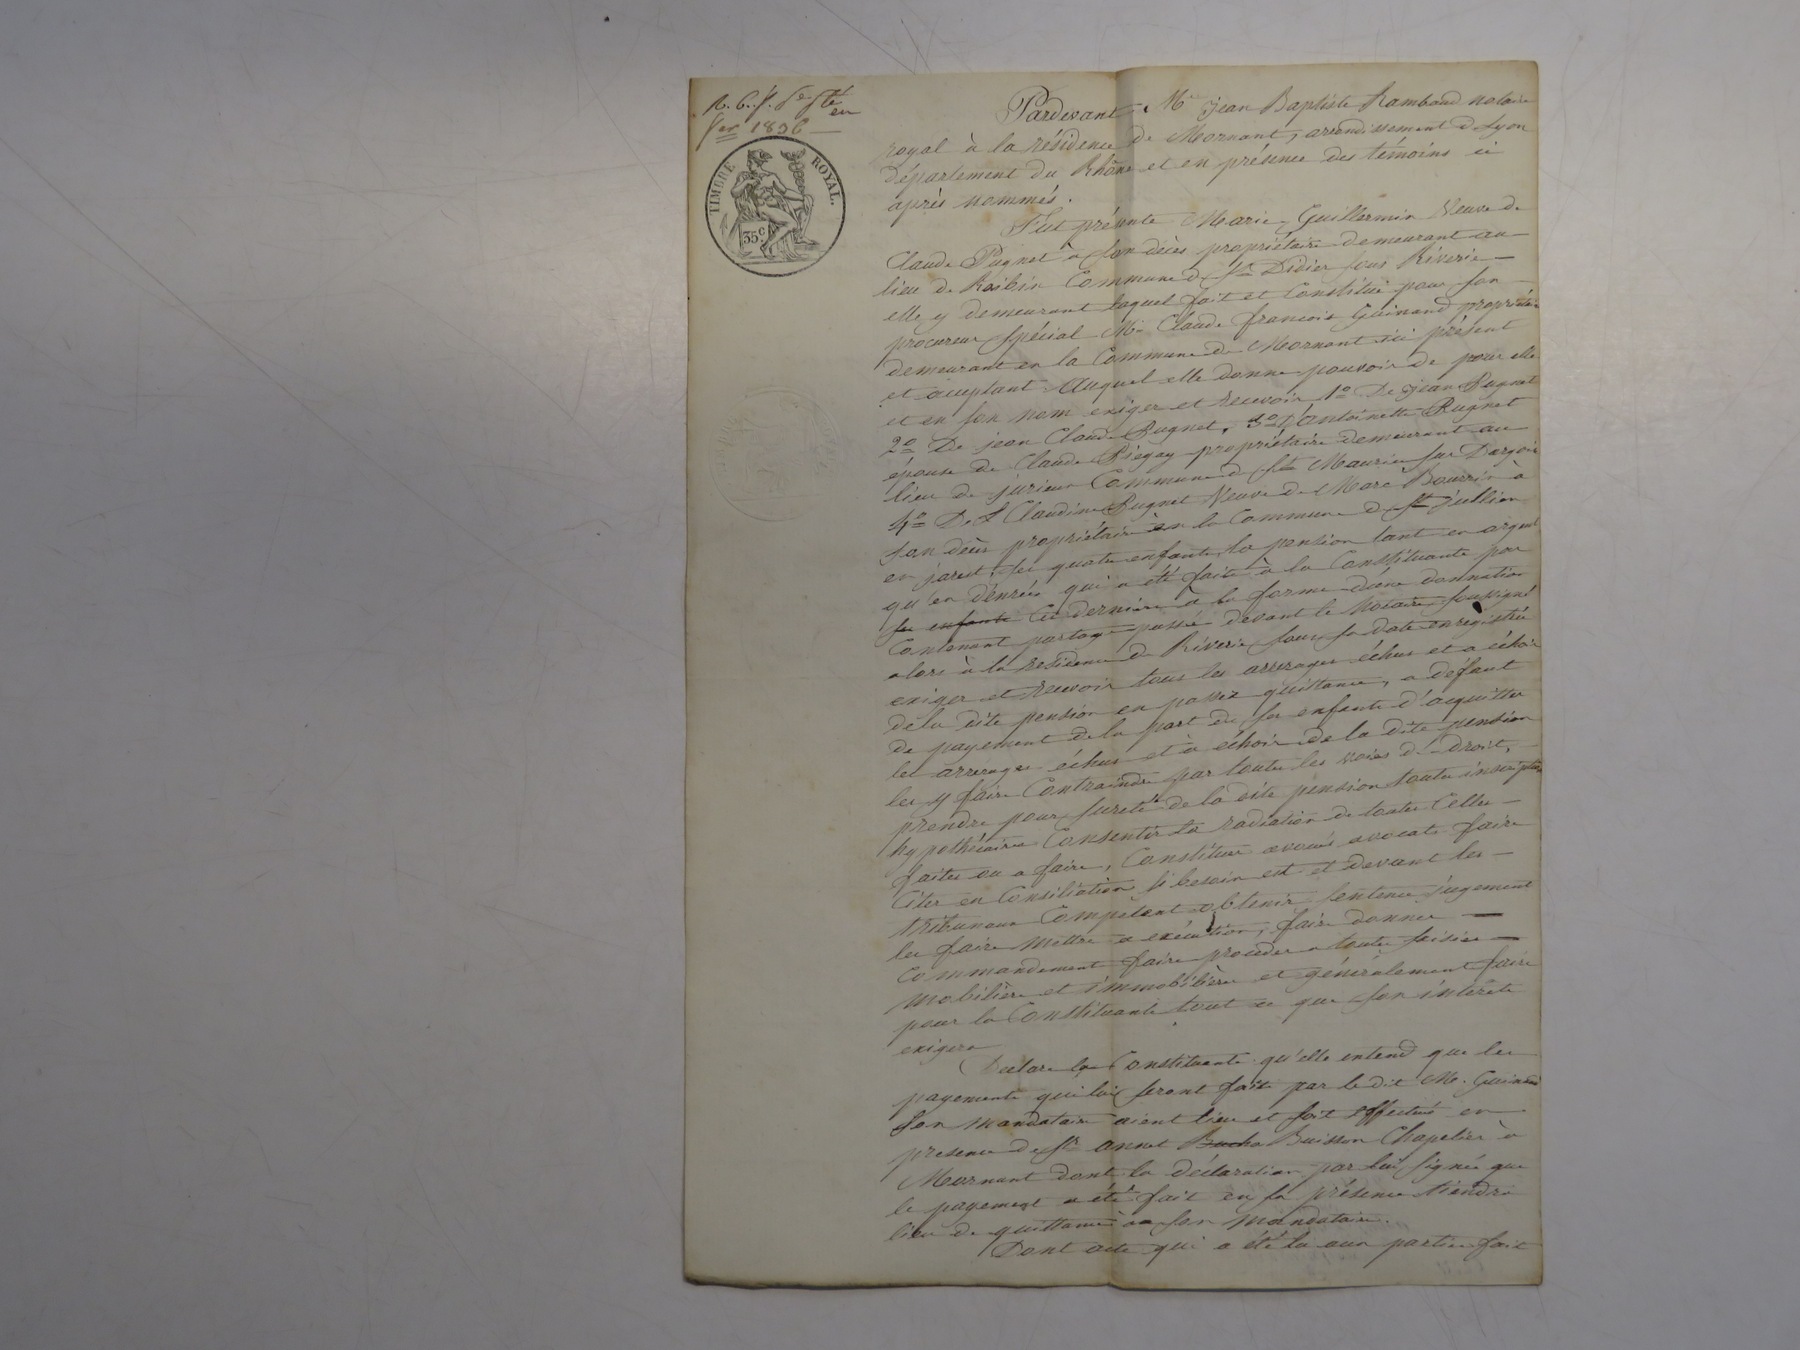 1836
TIMBRE ROYAL.
35c
Pardevant Me jean Baptiste Rambaud notaire
royal à la résidence de Mornant, arrondissement de Lyon
département du Rhône et en présence des témoins ci
après nommés.
Fut présente Marie Guillermin Veuve de
Claude Pugnet a son décès propriétaire demeurant au
lieu de Commune de St Didier sous Riverie
elle y demeurant laquel fait et Constitue pour son
procureur spécial Mr Claude françois Guinand propriétaire
demeurant en la Commune de Mornant ici présent
et acceptant. Auquel elle donne pouvoir de pour elle
et en son nom exiger et recevoir 1o De jean Pugnet
2o De jean Claude Pugnet, 3o d'antoinette Pugnet
épouse de Claude Piegay propriétaire demeurant au
lieu de jurieux Commune de St Maurice sur Dargoire
4o De Claudine Pugnet Veuve de Marc Bourrin à
son décès propriétaire en la Commune de St jullien
en jarest, ses quatre enfants, la pension tant en argent
qu'en denrées qui a été faite à la Constituante par
ses enfants Ces derniers à la forme d'une donnation
Contenant partage passée devant le Notaire soussigné
alors à la résidence de Riverie sous sa date enregistrée
exiger et recevoir tous les arrerages échus et a échoir
de la dite pension en passer quittance, a défaut
de payement de la part de ses enfants d'acquitter
les arrerages échus et à échoir de la dite pension
les y faire Contraindre par toutes les voies de Droit,
prendre pour sureté de la dite pension toute inscription
hypothécaires Consentir la radiation de toutes Celles
faites ou a faire, Constituer avoués avocats faire
Citer en Consiliation si besoin est et devant les
tribunaux Compétent obtenir sentence jugement
les faire mettre a exécution, faire donner
Commandement faire proceder a toute saisies
mobilière et immobilière et généralement faire
pour la Constituante tout ce que son intérêts
exigera
Declare la Constituante qu'elle entend que les
payements qui lui seront fait par le dit M. Guinand
son mandataire aient lieu et soit effectués en
presence de Sr annet Buisson Chapelier à
Mornant dont la déclaration par lui signée que
le payement a été fait en sa présence tiendra
lieu de quittance à son mandataire.
Dont acte qui a été lu aux parties fait